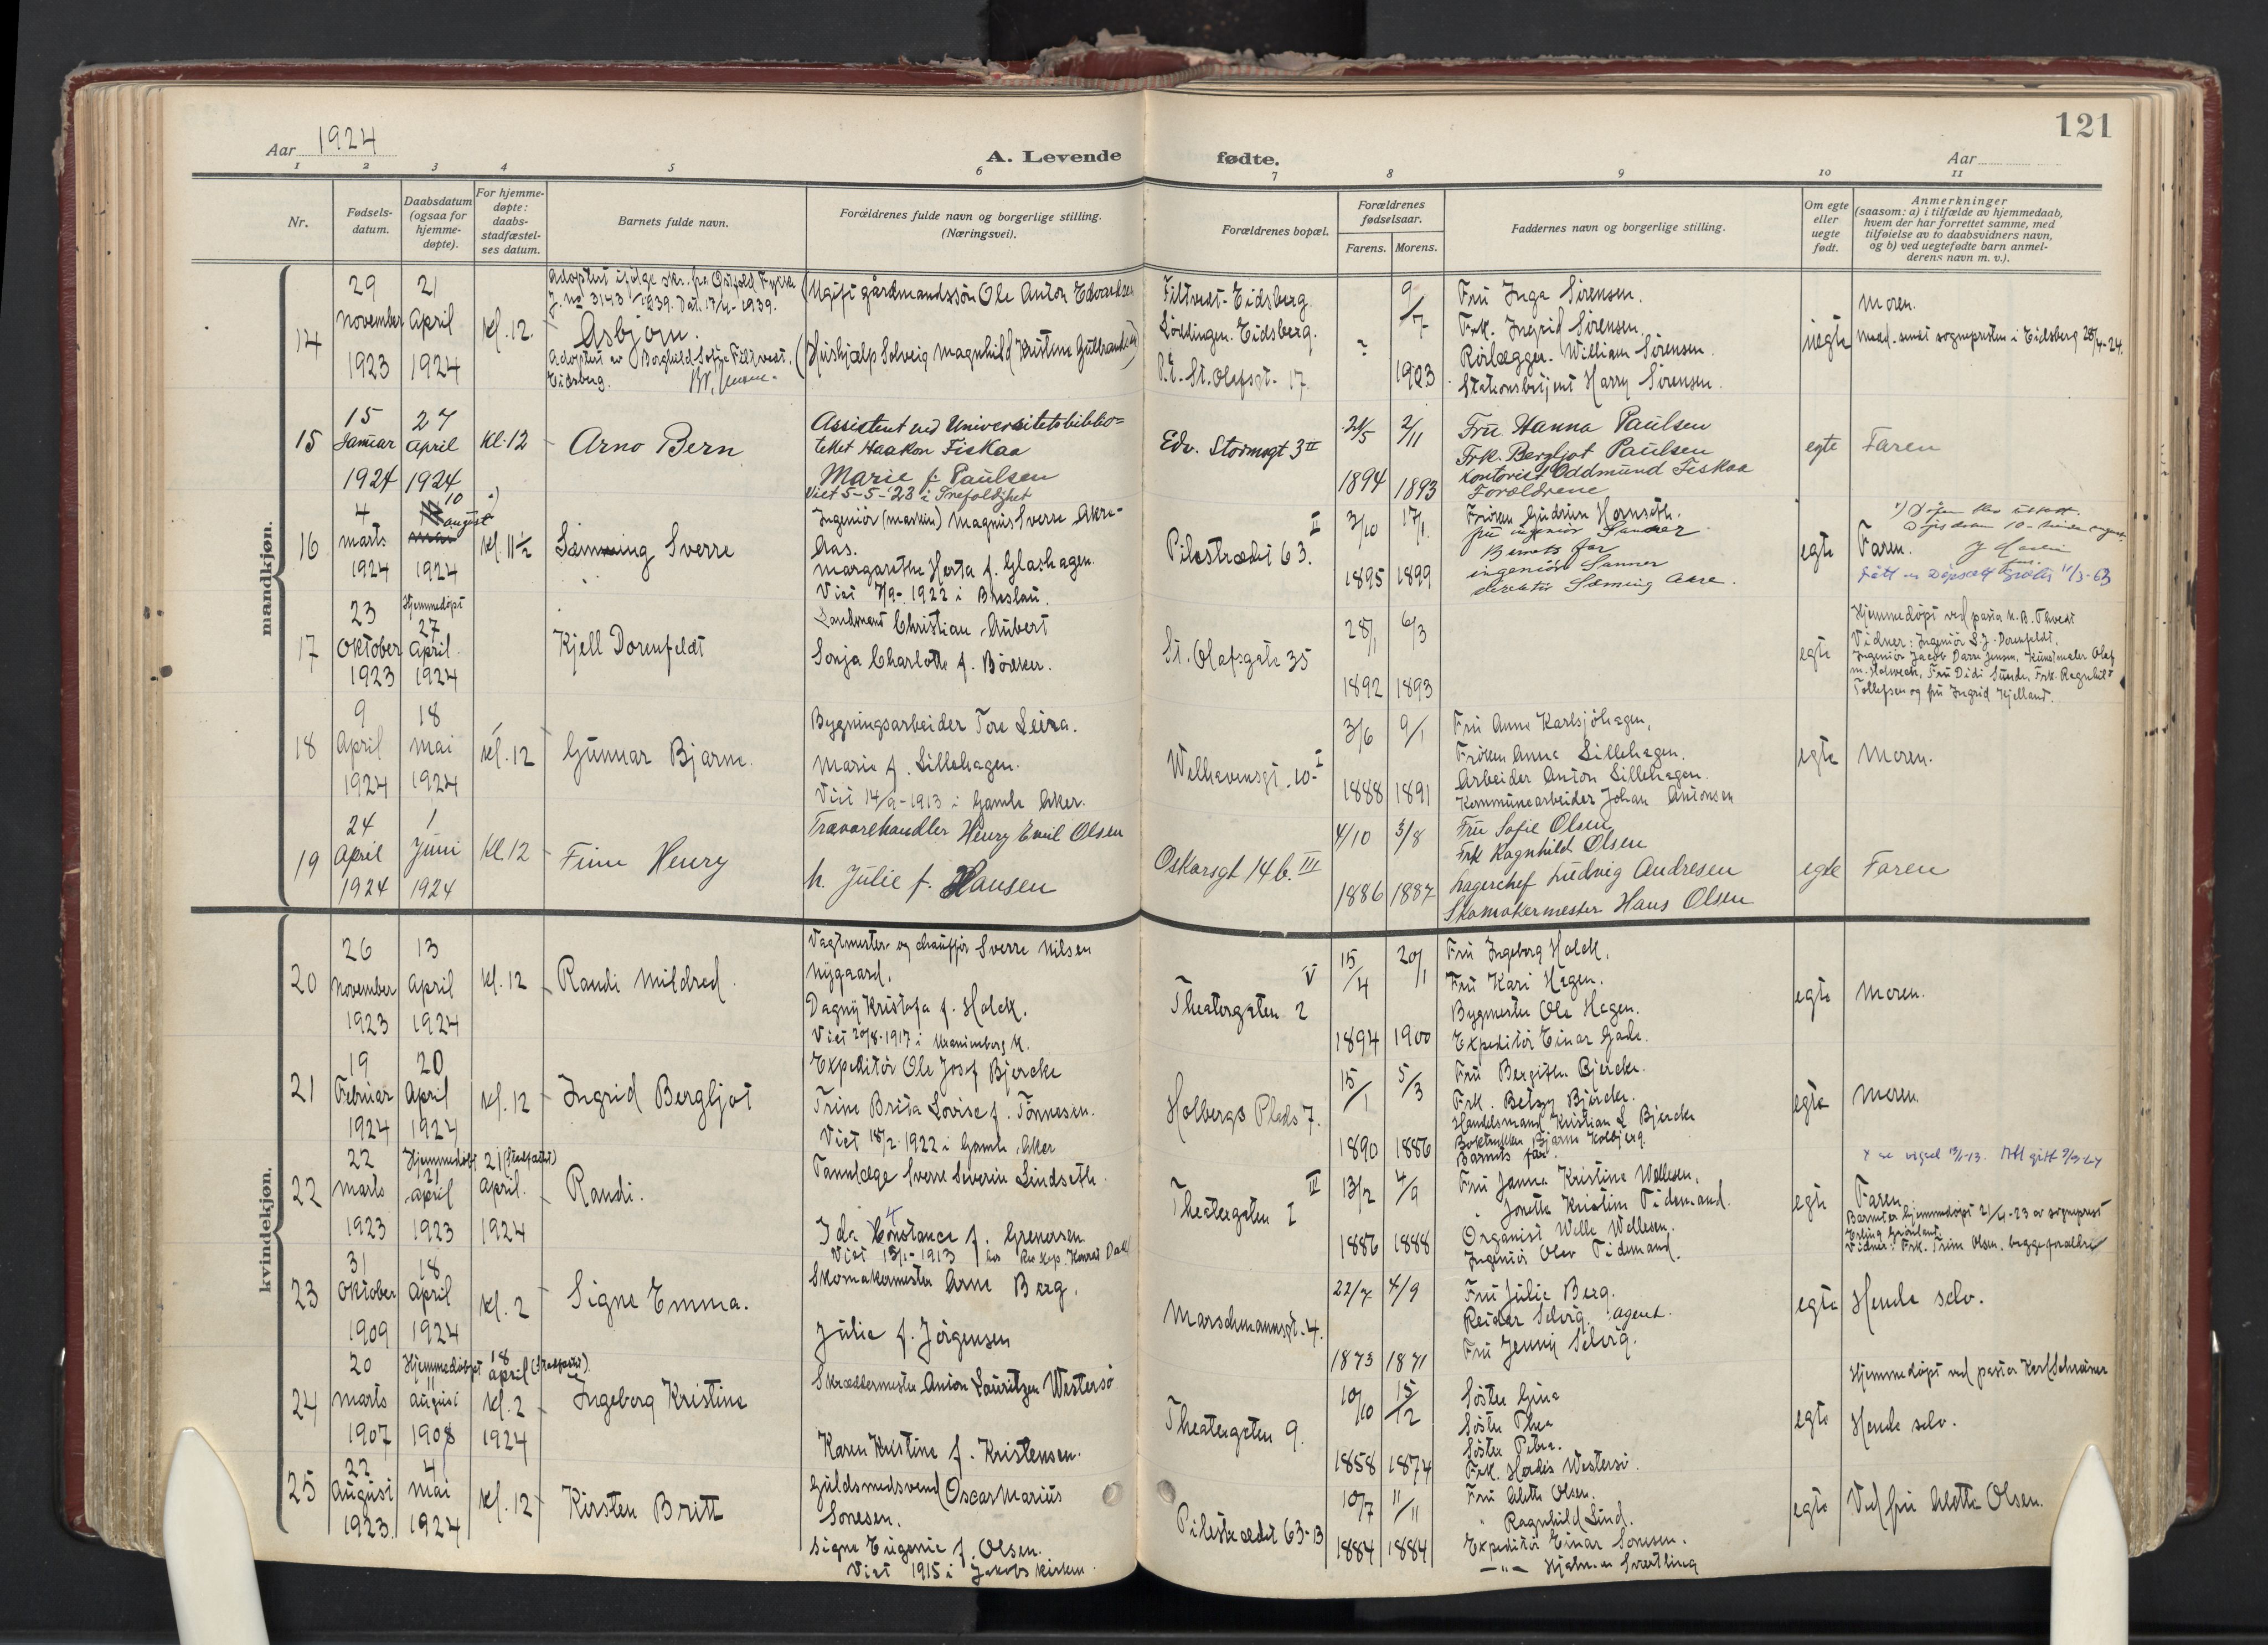 121
Aar 1924
A. Levende fødte.
Aar
1 2 3 4 5 6 7 8 9 10 11
Nr.
Fødsels-
datum.
Daabsdatum
(ogsaa for
hjemme-
døpte).
For hjemme-
døpte:
daabs-
stadfæstel-
ses datum.
Barnets fulde navn.
Forældrenes fulde navn og borgerlige stilling.
(Næringsvei).
Forældrenes bopæl.
Forældrenes
fødselsaar.
Farens. Morens.
Faddernes navn og borgerlige stilling.
Om egte
eller
uegte
født.
Anmerkninger
(saasom: a) i tilfælde av hjemmedaab,
hvem der har forrettet samme, med
tilføielse av to daabsvidners navn,
og b) ved uegtefødte barn anmel-
derens navn m. v.).
mandkjøn.
14
29
November
1923
21
April
1924
Kl. 12.
Adoptert ifølge skr. fra Østfold Fylke
J. no 3143/1939. Dat. 17/4-1939.
Asbjørn.
Adoptert av Borghild Sofie Filtvedt.
Eidsberg.
Ugift gårdmandssøn Ole Anton Edvardsen
Hushjælp Solveig Magnhild Kristine Gulbrandsen
Filtvedt-Eidsberg
Eidsberg.
St. Olafsgt. 17
?
9/7
1903
Fru Inga Sørensen.
Frk. Ingrid Sørensen.
Rørlægger William Sørensen.
Stationsbetjent Harry Sørensen.
uegte
Moren.
Med. sendt sogneprsten i Eidsberg 28/4-24.
15
15
Januar
1924
27
April
1924
Kl. 12
Arno Bern
Assistent ved Universitetsbiblio=
teket Haakon Fiskaa
Marie f. Paulsen
Viet 5-5-'23 i Trefoldighet
Edv. Stormsgt 3 II
24/5
1894
2/11
1893
Frü Hanna Paulsen
Frk. Bergljot Paulsen
Kontorist Oddmund Fiskaa
Forældrene
egte
Faren
16
4
marts
1924
10
august
mai
1924
Kl. 11½
Sæmming Sverre
Ingeniør (maskin) Magnus Sverre Akre-
Aas.
Margarethe Herta f. Glashagen.
Viet 7/9-1922 i Breslau.
Pilestrædet 63. II
3/10
1895
17/1
1899
Frøken Gudrun Hornseth.
fru ingeniør Sanner
Barnets far
ingeniør Sanner
direktør Sæming Akre.
egte
Faren.
17
23
Oktober
1923
Hjemmedøpt
27
April
1924
Kjell Dorenfeldt
Landmand Christian Aubert
Sonja Charlotte f. Böcker.
St. Olafsgate 35
28/1
1892
6/3
1893
egte
Hjemmedøpt ved pastor K. B. Thvedt
Vidner: Ingeniør L. J. Dorenfeldt,
Ingeniør Jacob Darre Jensen, Kunstmaler Olaf
M. Holwech, Fru Didi Sunde, Frk. Ragnhild
Tollefsen og fru Ingrid Kjelland.
18
9
April
1924
18
Mai
1924
Kl. 12
Gunnar Bjarne.
Bygningsarbeider Tore Leira.
Marie f. Lillehagen.
Viet 14/9-1913 i Gamle Aker.
Welhavensgt. 10 I
3/6
1888
9/1
1891
Fru Anne Karlsjøhagen,
Frøken Anna Lillehagen.
Arbeider Anton Lillehagen.
Kommunearbeider Johan Antonsen
egte
Moren.
19
24
April
1924
1
Juni
1924
Kl. 12
Finn Henry
Trævarehandler Henry Emil Olsen
h. Julie f. Hansen
Oskarsgt 14 b. III
4/10
1886
3/8
1887
Frü Sofie Olsen
Frk Ragnhild Olsen
Lagerchef Ludvig Andresen
Skomakermester Hans Olsen
egte
Faren
kvindekjøn.
20
26
November
1923
13
April
1924
Kl. 12
Randi Mildred.
Vagtmester og chauffør Sverre Nilsen
Nygaard.
Dagny Kristofa f. Holck.
Viet 20/8-1917 i Uranienborg K.
Theatergaten 2 V
15/4
1894
20/1
1900
Fru Ingeborg Holck.
Fru Kari Hagen.
Bygmester Ole Hagen.
Expeditør Einar Gade.
egte
Moren.
21
19
Februar
1924
20
April
1924
Kl. 12
Ingrid Bergljot
Expeditør Ole Josef Bjercke
Trine Brita Lovise f. Tönnesen.
Viet 18/2 1922 i Gamle Aker
Holbergs Plads 7.
15/1
1890
5/3
1886
Fru Bergithe Bjercke.
Frk. Betzy Bjercke.
Handelsmand Kristian L Bjercke
Boktrykker Bjarne Kolbjørg.
Barnets far.
egte
Moren
22
22
Marts
1923
Hjemmedøbt
21
April
1923
21 (Stadfæstet)
April.
1924
Randi.
Tannlæge Sverre Severin Lindseth.
Ida Constance f. Grenersen
Viet 15/1-1913 hos Res. kap. Konrad Dahl
Theatergaten 2 III
13/2
1886
4/9
1888
Fru Janna Kristine Wellesen.
" Josetta Kristine Tidemand.
Organist Welle Wellesen.
Ingeniør Olav Tidemand.
egte
Faren
Barnet er hjemmedøpt 21/4-23 av sogneprest
Erling Grönland.
Vidner: Frk. Trine Olsen. begge forældre
23
31
Oktober
1909
18
April
1924
Kl. 2
Signe Emma.
Skomakermester Arne Berg.
Julie f. Jörgensen
Marschmannsgt. 4.
22/7
1873
4/9
1871
Fru Julie Berg.
Reidar Solvig. agent.
Fru Jenny Solvig.
egte
Hende selv.
24
20
Marts
1907
Hjemmedøbt
11
August
1908
18
April (Stadfæstet)
Kl. 2
1924
Ingeborg Kristine
Skræddermester Anton Lauritzen Westersö
Karen Kristine f. Kristensen.
Theatergaten 9.
10/10
1858
15/12
1874
Söster Gina
Söster Thea
Söster Petra.
Frk. Hordis Westersö.
egte
Hjemmedøpt ved pastor Kort Schreiner
Hende selv.
25
22
August
1923.
4
Mai
1924
Kl. 12
Kirsten Britt
Guldsmedsvend Oscar Marius
Sonesen.
Signe Eugenie f. Olsen.
Viet 1915 i Jakobs kirken.
Pilestrædet 63-B
10/7
1884
11/11
1884
Fru Alette Olsen.
" Ragnhild Lind.
Expeditör Einar Sonesen.
—"— Hjalmar Sværtling
egte
Ved fru Alette Olsen.